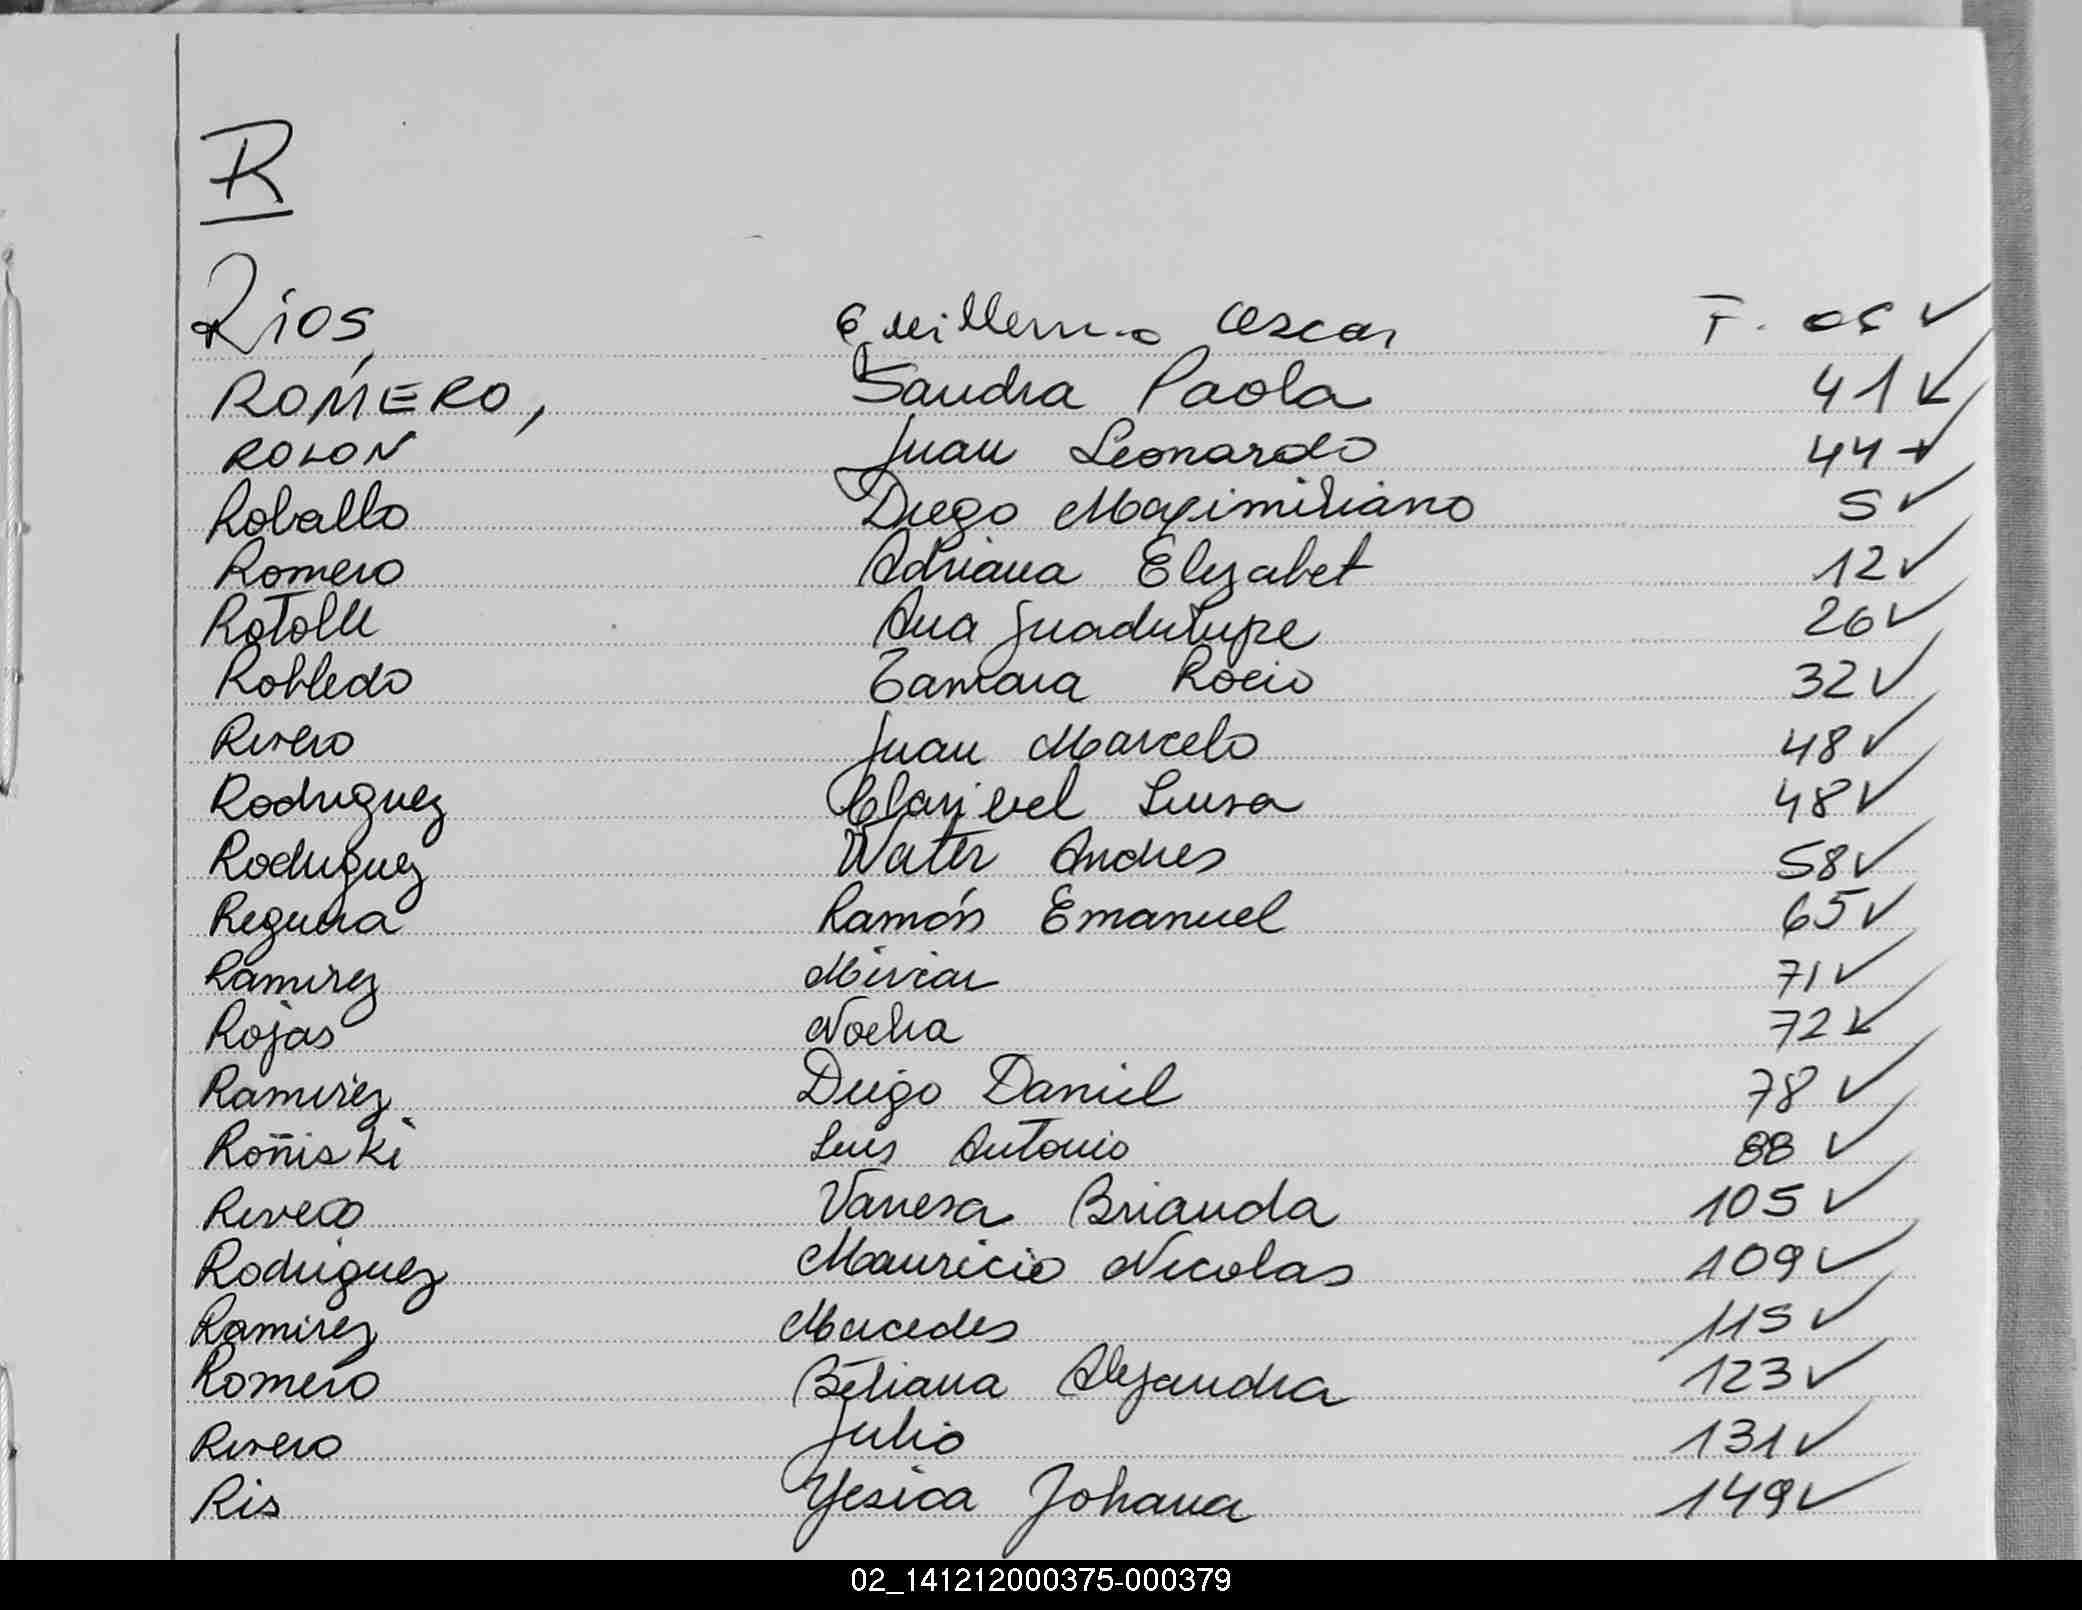 R
Ríos, Guillermo Oscar F. 05 ✓
ROMERO, Sandra Paola 41 ✓
ROLON Juan Leonardo 44 ✓
Roballo Diego Maximiliano 5 ✓
Romero Adriana Elizabet 12 ✓
Ana Guadulupe 26 ✓
Robledo Tamara Rocio 32 ✓
Rivero Juan Marcelo 48 ✓
Rodriguez Luisa 48 ✓
Rodriguez Water Andres 58 ✓
Reguera Ramón Emanuel 65 ✓
Ramirez Mirian 71 ✓
Rojas Noelia 72 ✓
Ramirez Diego Daniel 78 ✓
Roñiski Luis Antonio 88 ✓
Rivero Vanesa Brianda 105 ✓
Rodriguez Mauricio Nicolas 109 ✓
Ramirez Mercedes 115 ✓
Romero Betiana Alejandra 123 ✓
Rivero Julio 131 ✓
Ris Yesica Johana 149 ✓
02_141212000375-000379